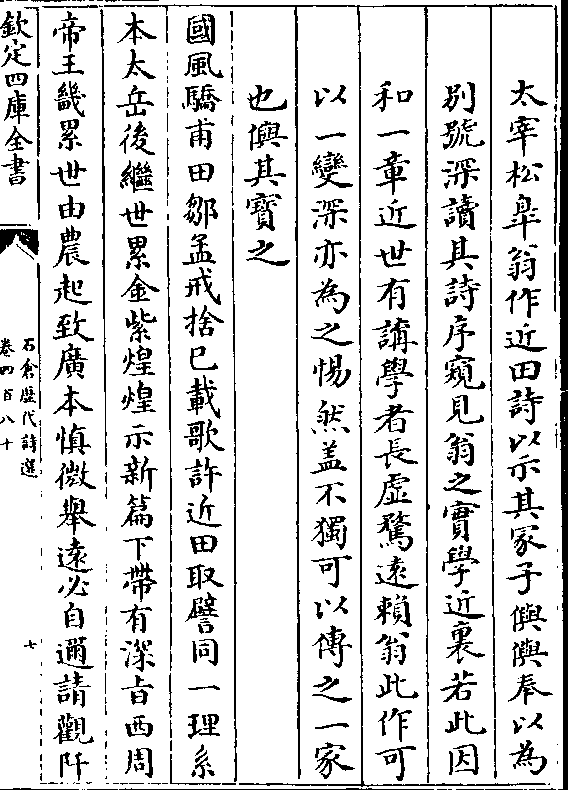 太宰松臯翁作近田詩以示其冢子㒜㒜奉以為
別號深讀其詩序窺見翁之實學近裏若此因
和一章近世有講學者長虛騖遠賴翁此作可
以一變深亦為之惕然盖不獨可以傳之一家
也㒜其寶之
國風驕甫田鄒孟戒捨已載歌許近田取譬同一理系
本太岳後繼世累金紫煌煌示新篇下帶有深㫖西周
帝王畿累世由農起致廣本慎微舉遠必自邇請觀阡
欽定四庫全書
石倉歷代詩選
卷四百八十
七